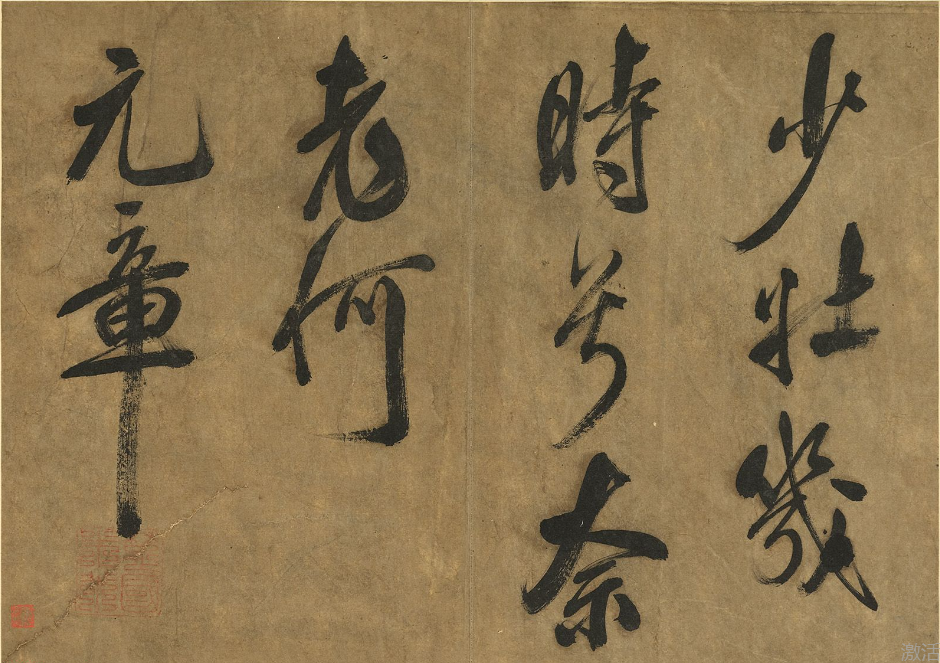 少壯幾
時兮奈
老何
元章
激活